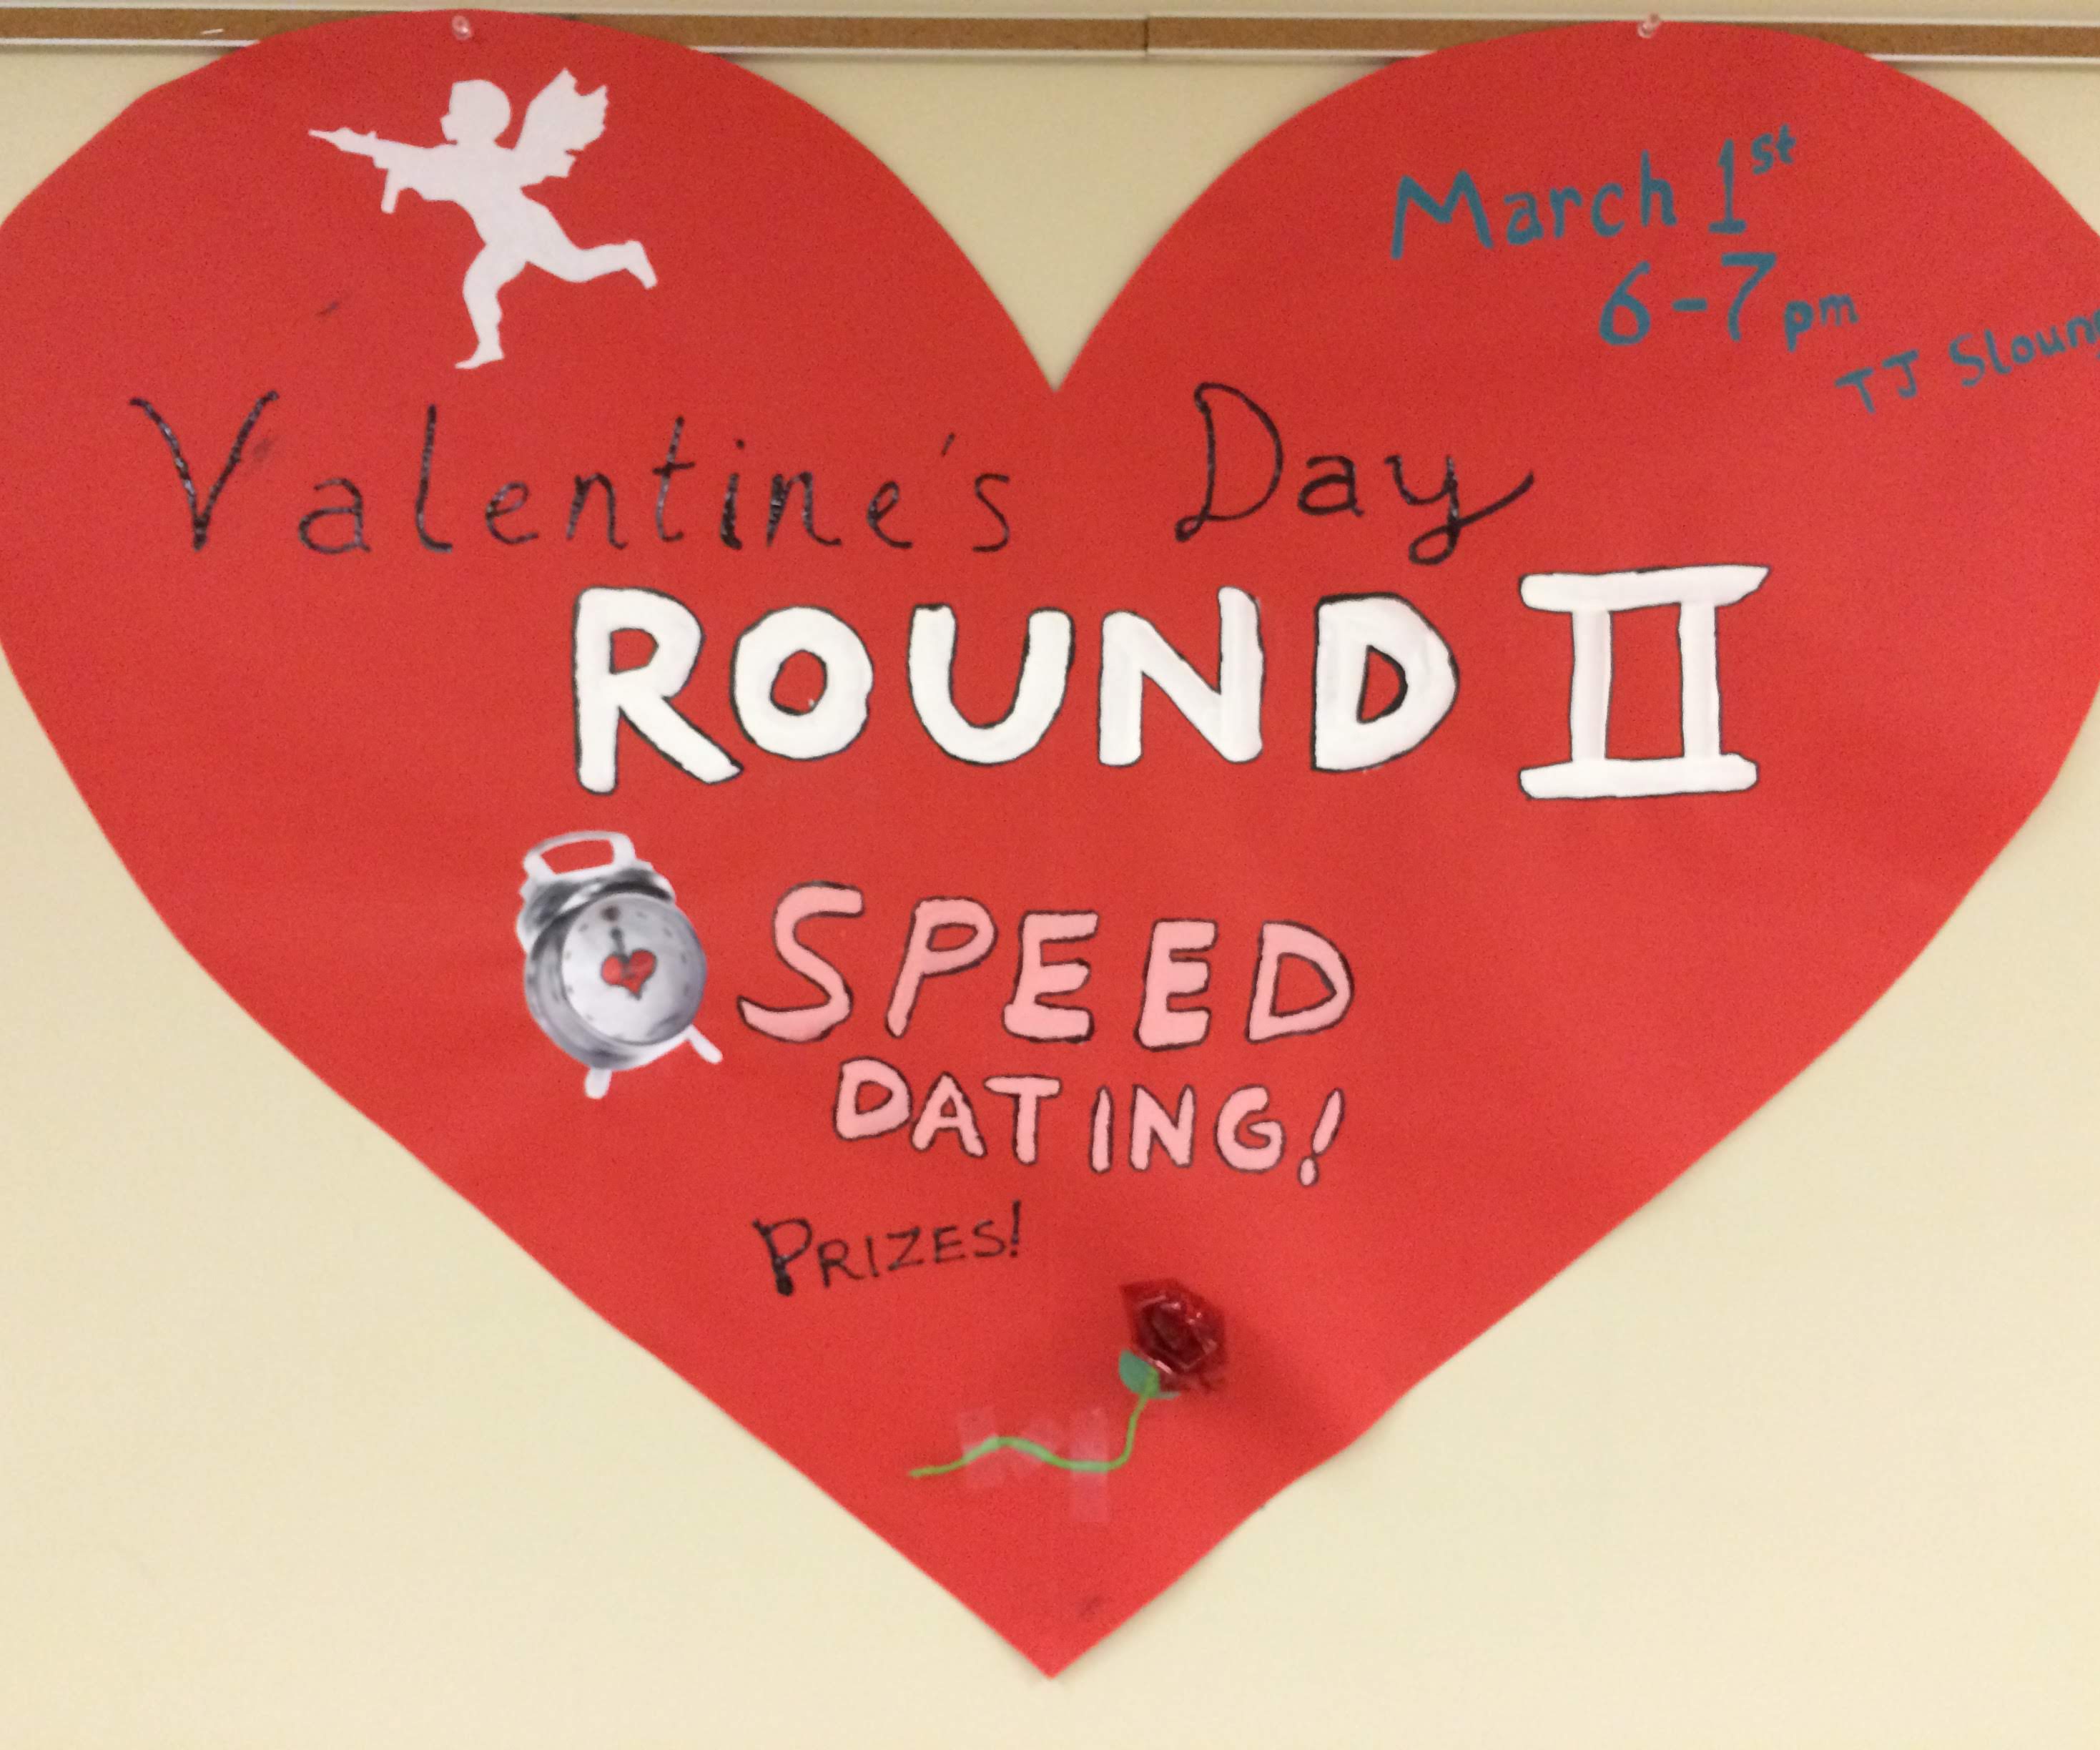 March 1st
6-7pm
TJ
Valentine's Day
ROUND II
SPEED
DATING!
PRIZES!